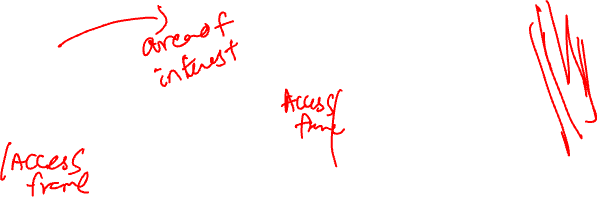 area of
interest
Access
frame
Access
frame